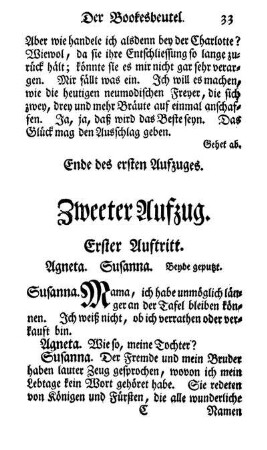 Der Bookesbeutel. 33
Aber wie handele ich alsdenn bey der Charlotte?
Wiewol, da sie ihre Entschliessung so lange zu-
rück hält; könnte sie es mir nicht gar sehr verar-
gen. Mir fällt was ein. Ich will es machen,
wie die heutigen neumodischen Freyer, die sich
zwey, drey und mehr Bräute auf einmal anschaf-
fen. Ja, ja, daß wird das Beste seyn. Das
Glück mag den Ausschlag geben.
Gehet ab.
Ende des ersten Aufzuges.
Zweeter Aufzug.
Erster Auftritt.
Agneta. Susanna. Beyde geputzt.
Susanna. Mama, ich habe unmöglich län-
ger an der Tafel bleiben kön-
nen. Ich weiß nicht, ob ich verrathen oder ver-
kauft bin.
Agneta. Wie so, meine Tochter?
Susanna. Der Fremde und mein Bruder
haben lauter Zeug gesprochen, wovon ich mein
Lebtage kein Wort gehöret habe. Sie redeten
von Königen und Fürsten, die alle wunderliche
C Namen